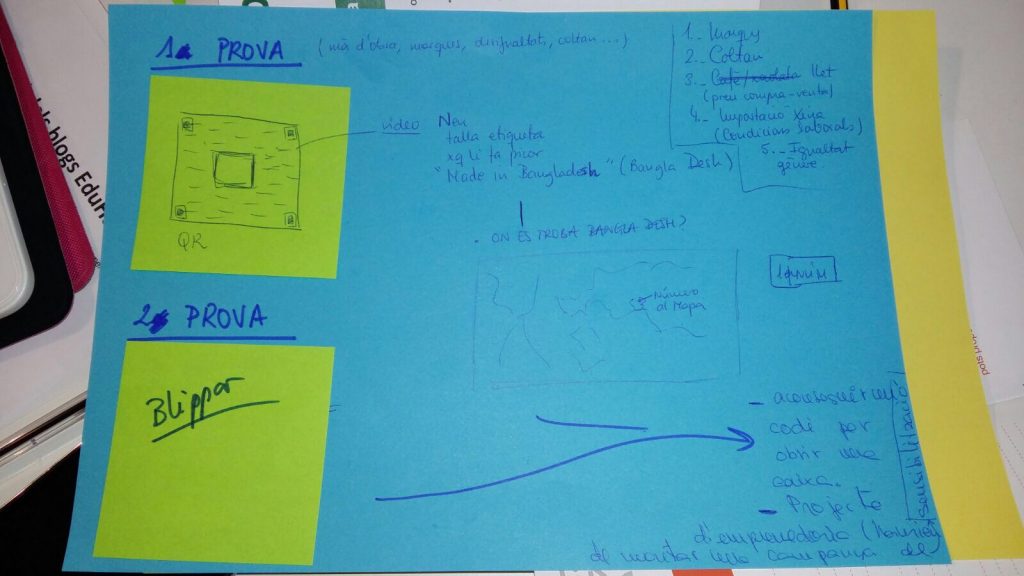 1a PROVA
(mà d'obra, marques, desigualtat, coltan...)
1.- Marques
2.- Coltan
3.- Llet
(preu compra-venta)
4.- Importació Xina
(Condicions laborals)
5.- Igualtat
gènere
video Nen
talla etiqueta
xq li fa picor
"Made in Bangladesh" (Bangla Desh)
QR
. ON ES TROBA BANGLA DESH?
Número
al Mapa
2a PROVA
Blippar
- aconsegueixi
codi per
obrir una
caixa.
- Projecte
d'emprenedoria
de muntar una campanya de
sensibilització
ls blogs EduR